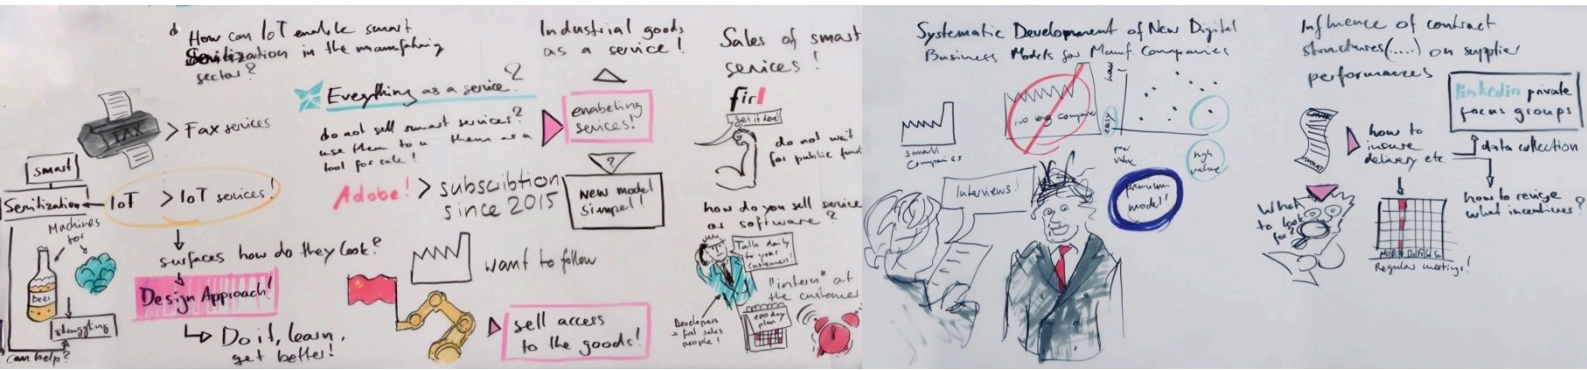 How can IoT enable smart
Servitization in the manufatring
sector?
FAX
> Fax services
smart
Servitization
IoT > IoT services!
Machines
for
Beer
struggling
can help?
surfaces how do they look?
Design Approach!
Do it, learn,
get better!
Everything as a service?
do not sell smart services?
use them to u them as a
tool for sale!
Adobe! > subscribtion
since 2015
want to follow
Industrial goods
as a service!
enabeling
services!
?
New model
simpel!!
sell access
to the goods!
Sales of smart
services!
firl
get it done!
do not wait
for public fund
how do you sell service
as software?
Talk daily
to your
Customers!
Developers
first sales
people!
"intern" at
the customer
100 day
plan
Systematic Development of New Digital
Business Models for Manuf Companies
small
Companies
no big companies
hard
easy
low
value
high
value
Interviews!
premium
model!
Influence of contract
structures(.....) on supplier
performances
linkedin private
focus groups
data collection
how to
insure
delivery etc.
how to revise
what incentives?
What
to look
for?
Regular meetings!